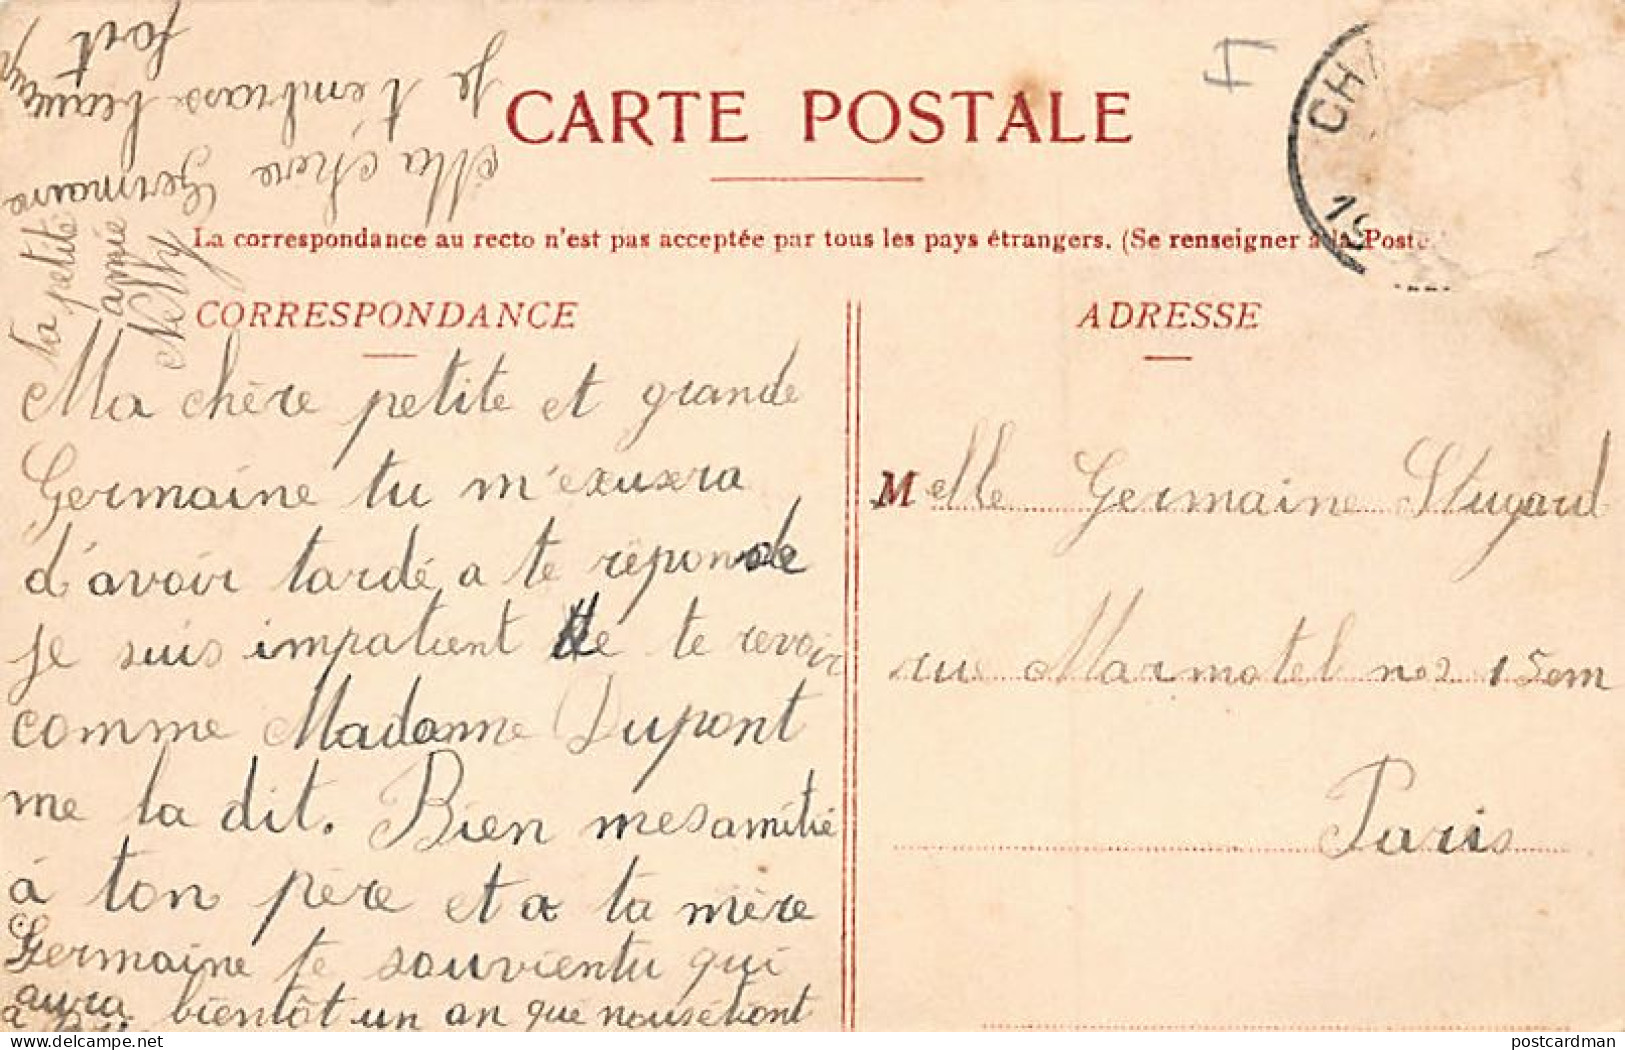 CARTE POSTALE
La correspondance au recto n'est pas acceptée par tous les pays étrangers. (Se renseigner à la Poste.
CORRESPONDANCE
Ma chère petite et grande
Germaine tu m'exuxera
d'avoir tardé a te réponde
je suis impatient de te revoir
comme Madame Dupont
me la dit. Bien mesamitié
à ton père et a ta mère
Germaine te souvientu qui
aura bientôt un an que nousétiont
a
Ma chère Germaine
je t'embrasse beaucoup
fort
ta petite
amie
Nelly
ADRESSE
Melle Germaine Stugard
rue Marmotel no2 15em
Paris
CHA
19
postcardman